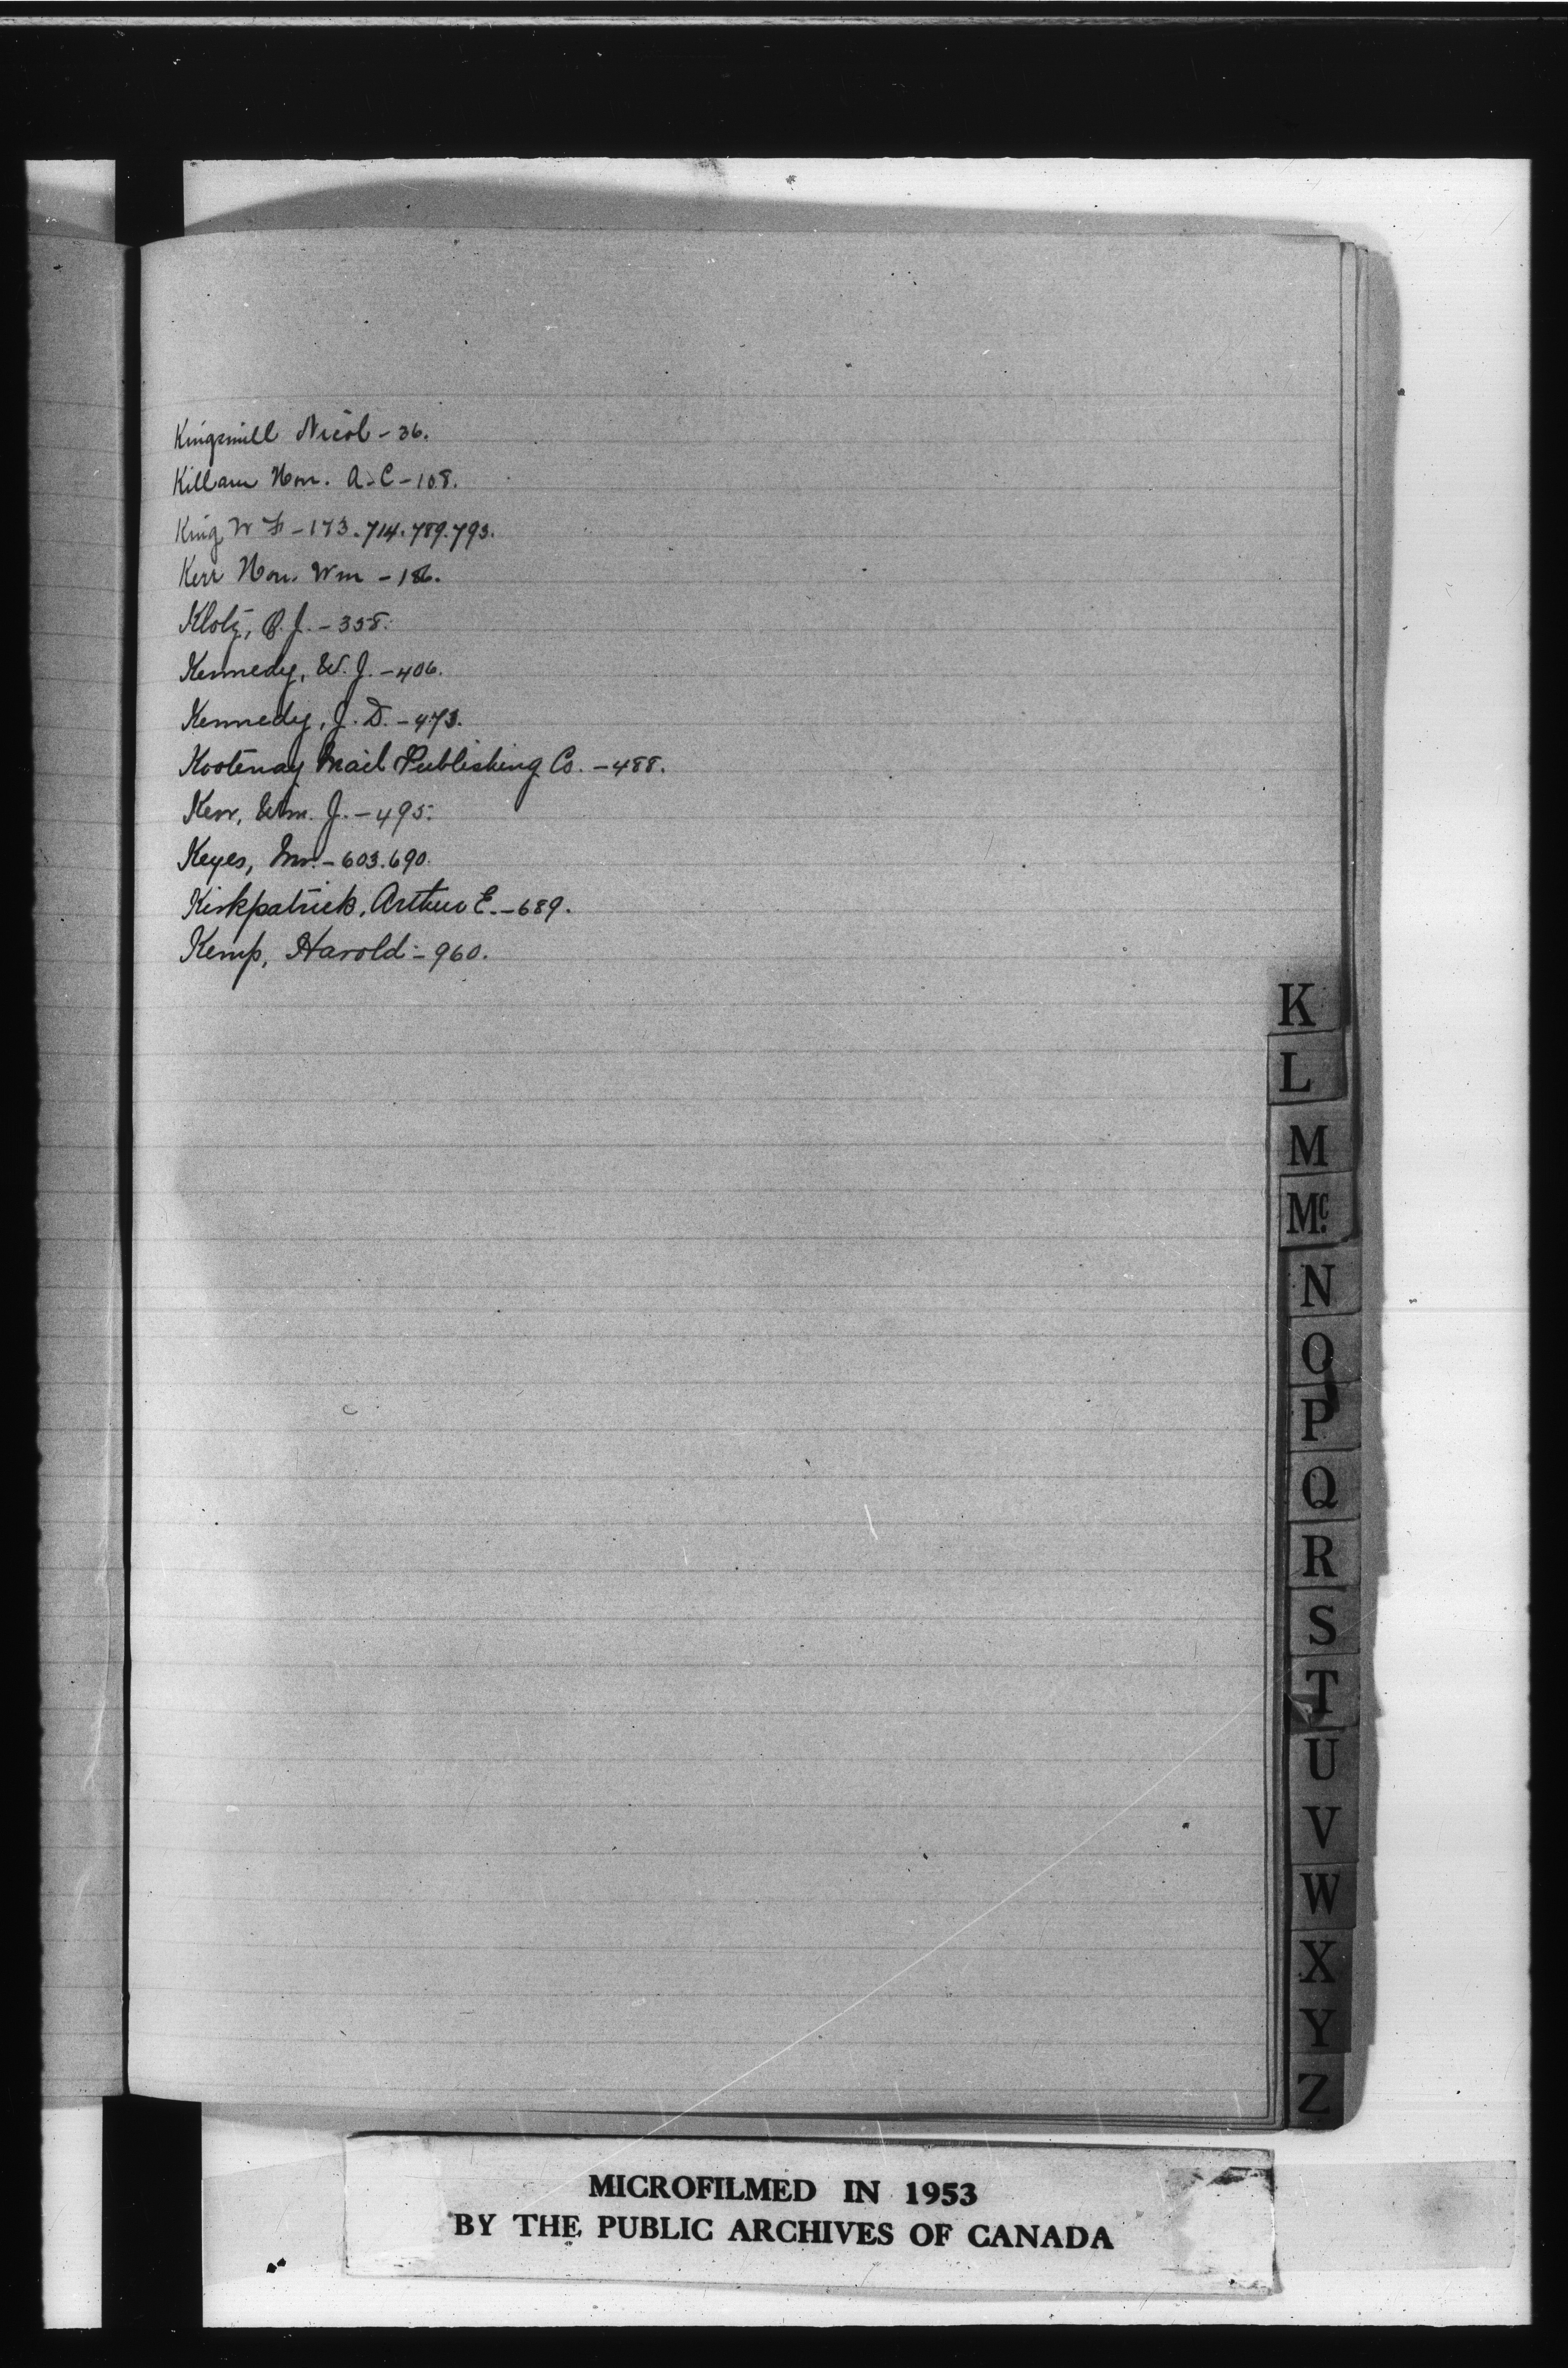 Kingsmill Nicol - 36.
Killam Hon. A.C - 108.
King W F - 173. 714. 789. 793.
Kerr Hon. Wm - 186.
Klotz, O. J. - 358.
Kennedy, W. J. - 406.
Kennedy, J. D. - 473.
Kootenay Mail Publishing Co. - 488.
Kerr, Wm. J. - 495.
Keyes, Mr. - 603. 690.
Kirkpatrick, Arthur E. - 689.
Kemp, Harold - 960.
K
L
M
Mc.
N
O
P
Q
R
S
T
U
V
W
X
Y
Z
MICROFILMED IN 1953
BY THE PUBLIC ARCHIVES OF CANADA